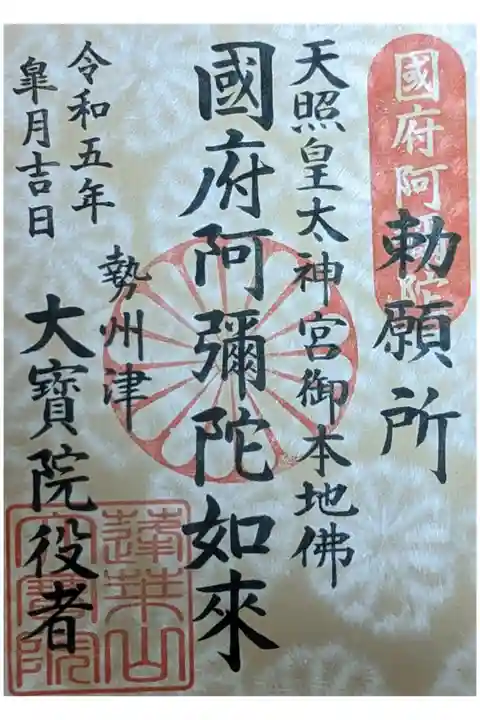 國府阿彌陀
勅願所
天照皇太神宮御本地佛
國府阿彌陀如來
勢州津
大寶院役者
令和五年
皐月吉日
蓮華山
大寶院